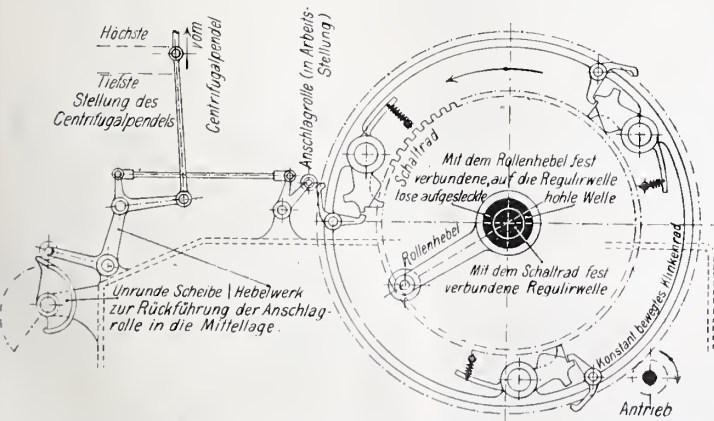 Höchste
Tiefste
Stellung des
Centrifugalpendels
vom
Centrifugalpendel
Anschlagrolle (in Arbeits-
Stellung)
Schaltrad
Mit dem Rollenhebel fest
verbundene, auf die Regulirwelle
lose aufgesteckte hohle Welle
Rollenhebel
Mit dem Schaltrad fest
verbundene Regulirwelle
Unrunde Scheibe | Hebelwerk
zur Rückführung der Anschlag-
rolle in die Mittellage.
Konstant bewegtes Klinkenrad
Antrieb